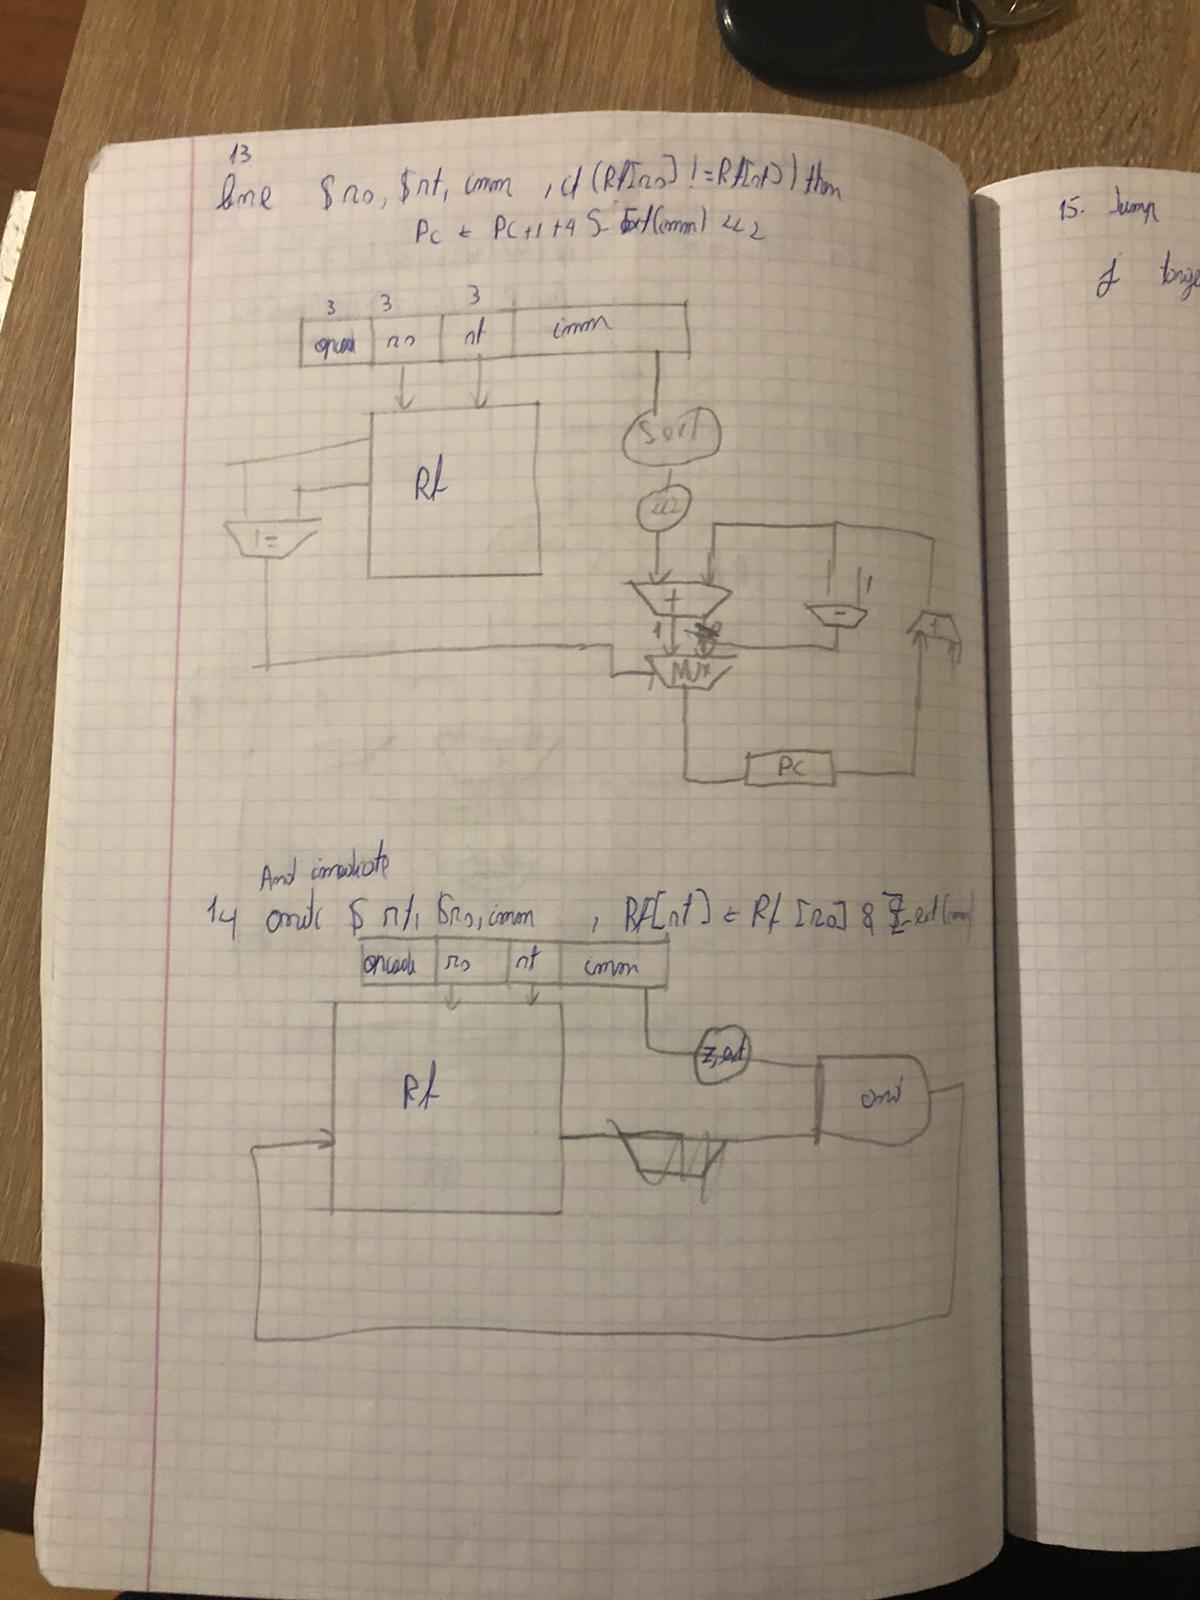 13
bne $rs, $rt, imm , if (Rf[rs] != Rf[rt]) then
PC ← PC+1+4 S-Ext(imm) <<2
3 3 3
opcode rs rt imm
S ext
Rf
<<2
!=
+
1
-
1
+
MUX
PC
And imediate
14 andi $ rt, $rs, imm , Rf[rt] ← Rf [rs] & Z-ext(imm)
opcode rs rt imm
Z, ext
Rf
and
15. Jump
J targe